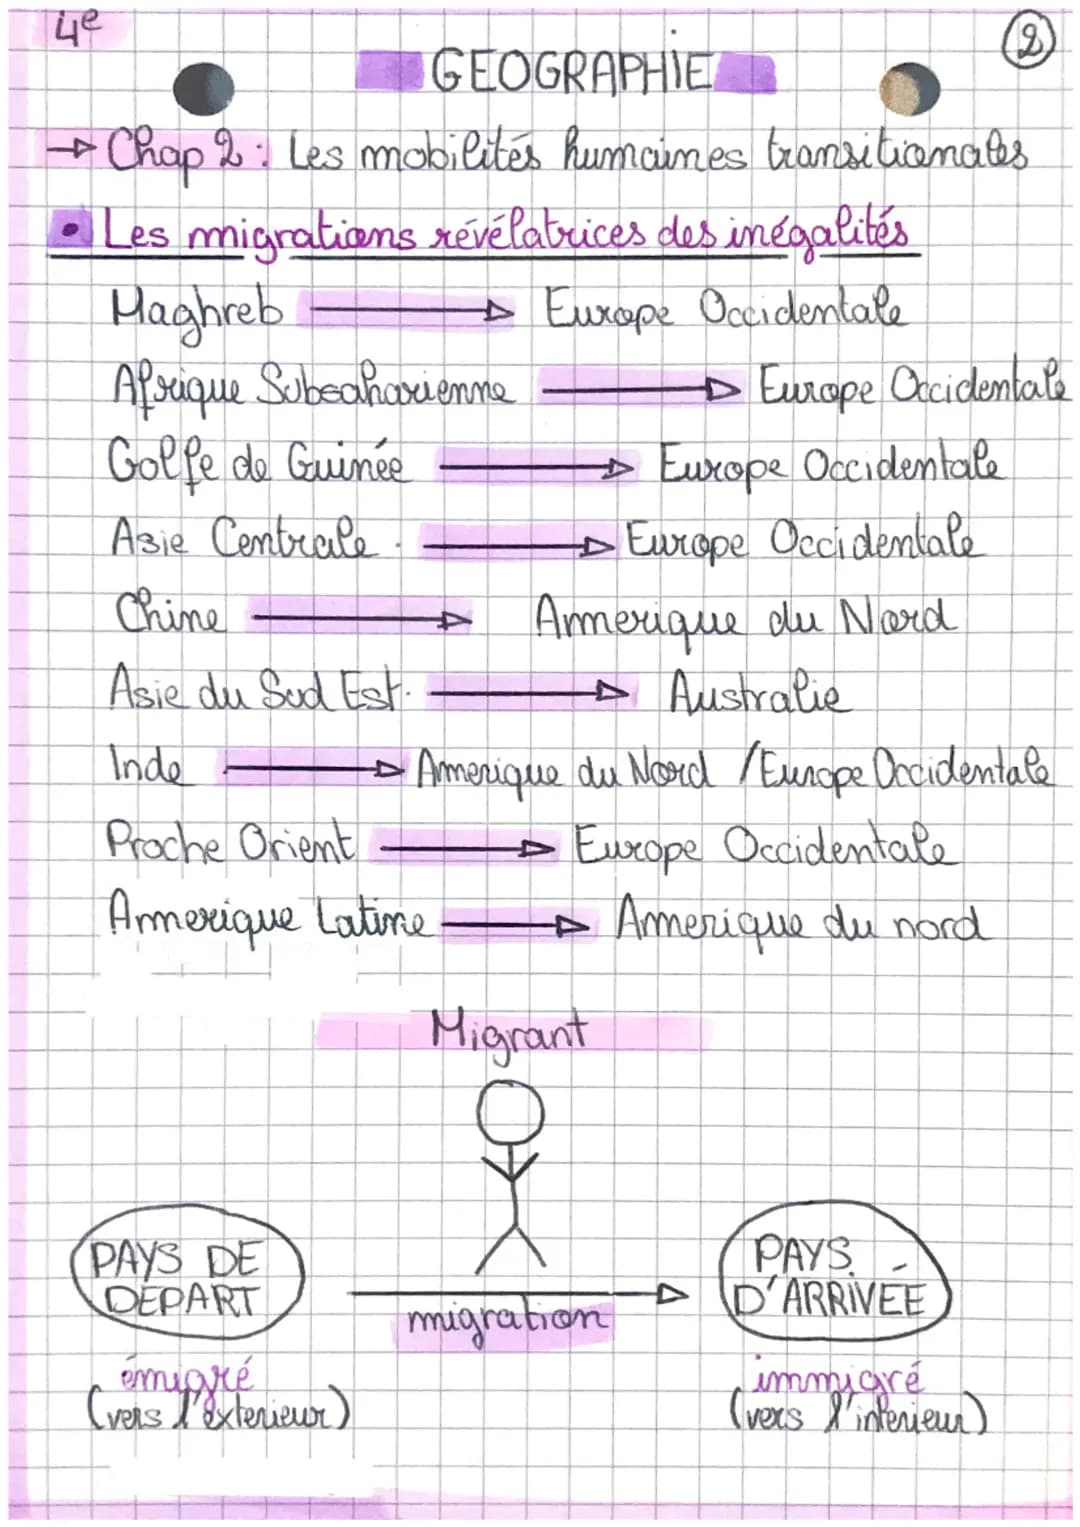 4e
2
GEOGRAPHIE
→ Chap 2 : Les mobilités humaines transitionales
• Les migrations révélatrices des inégalités
Maghreb → Europe Occidentale
Afrique Subsaharienne → Europe Occidentale
Golfe de Guinée → Europe Occidentale
Asie Centrale → Europe Occidentale
Chine → Amerique du Nord
Asie du Sud Est. → Australie
Inde → Amerique du Nord / Europe Occidentale
Proche Orient → Europe Occidentale
Amerique Latine → Amerique du nord
Migrant
PAYS DE DEPART
PAYS D'ARRIVÉE
migration
émigré
(vers l'exterieur)
immigré
(vers l'interieur)